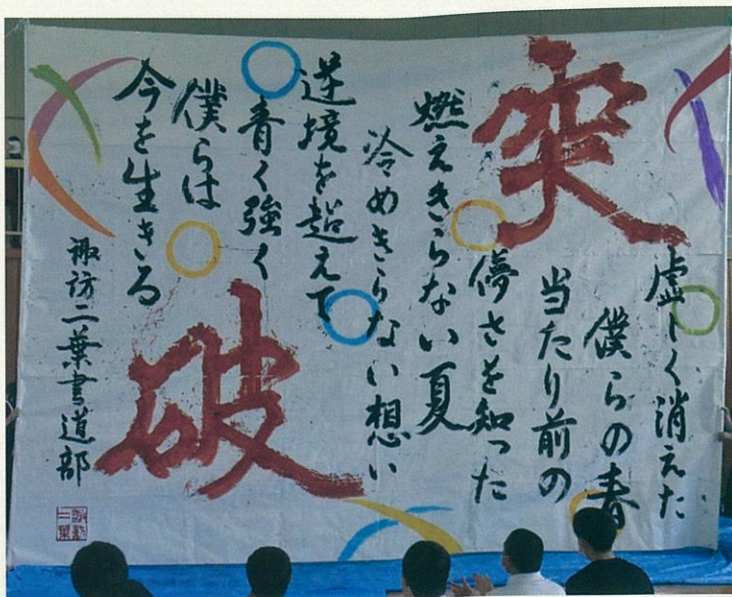 突破
虚しく消えた
僕らの春
当たり前の
儚さを知った
燃えきらない夏
冷めきらない想い
逆境を超えて
青く強く
僕らは
今を生きる
諏訪二葉書道部